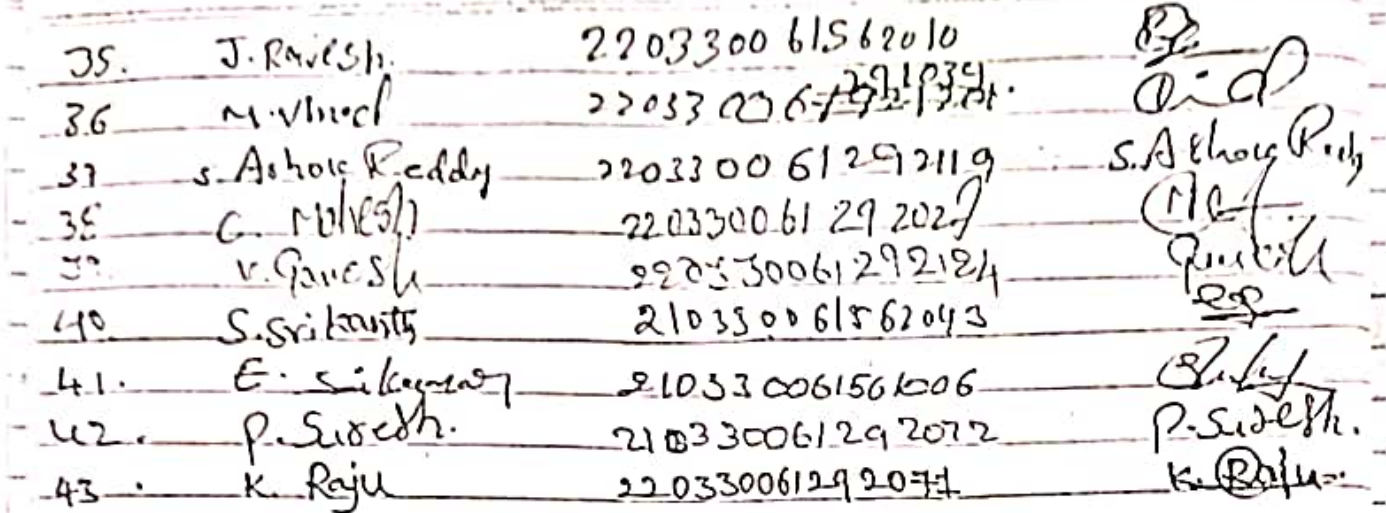 35. J. Rajesh. 220330061562010
36 M. Vinod
37 S. Ashok Reddy 220330061292119 S. Ashok Reddy
38 G. Mahesh 220330061292027
39 V. Ganesh 220330061292124
40 S. Srikanth 210330061562043
41. E. 210330061561006
42. P. Suresh. 210330061292072 P. Suresh.
43. K. Raju 220330061292077 K. Raju